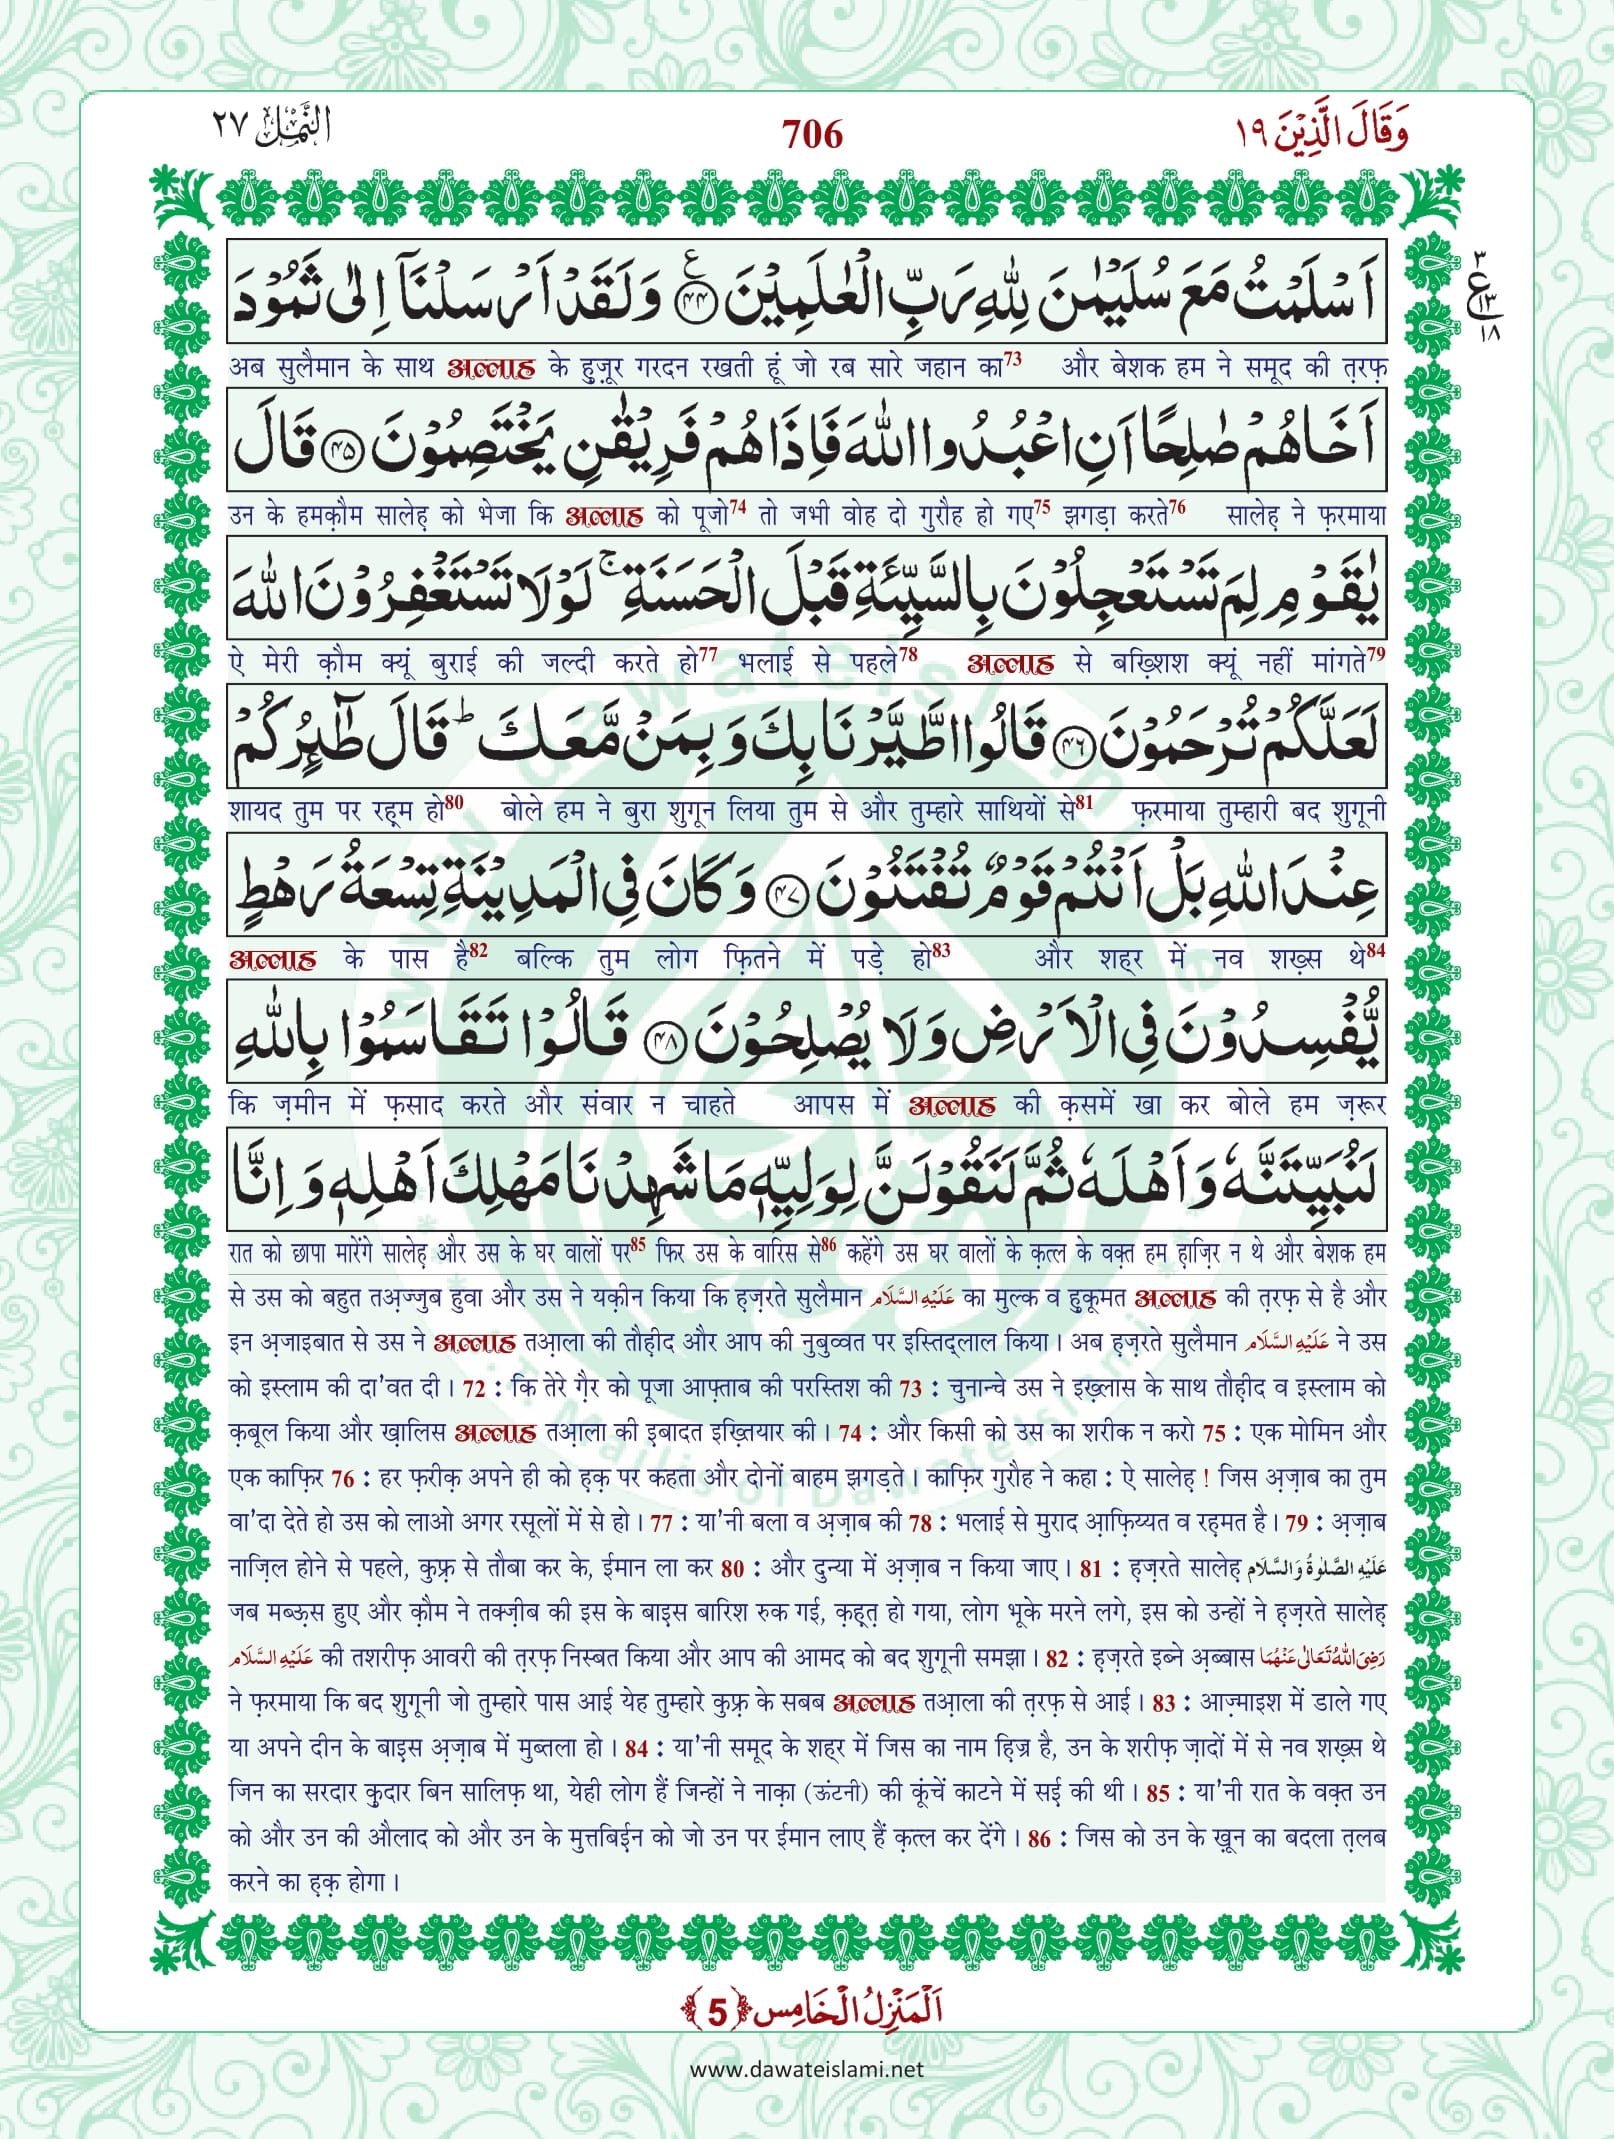 وَقَالَ الَّذِیْنَ ۱۹ 706 النَّمْل ۲۷
اَسْلَمْتُ مَعَ سُلَیْمٰنَ لِلّٰهِ رَبِّ الْعٰلَمِیْنَ ﴿۴۴﴾ ع وَ لَقَدْ اَرْسَلْنَاۤ اِلٰى ثَمُوْدَ
۳ ع ۱۳ ۱۸
अब सुलैमान के साथ अल्लाह के हुज़ूर गरदन रखती हूं जो रब सारे जहान का73 और बेशक हम ने समूद की त़रफ़
اَخَاهُمْ صٰلِحًا اَنِ اعْبُدُوا اللّٰهَ فَاِذَا هُمْ فَرِیْقٰنِ یَخْتَصِمُوْنَ ﴿۴۵﴾ قَالَ
उन के हमक़ौम सालेह़ को भेजा कि अल्लाह को पूजो74 तो जभी वोह दो गुरौह हो गए75 झगड़ा करते76 सालेह़ ने फ़रमाया
یٰقَوْمِ لِمَ تَسْتَعْجِلُوْنَ بِالسَّیِّئَةِ قَبْلَ الْحَسَنَةِ ۚ لَوْ لَا تَسْتَغْفِرُوْنَ اللّٰهَ
ऐ मेरी क़ौम क्यूं बुराई की जल्दी करते हो77 भलाई से पहले78 अल्लाह से बख़्शिश क्यूं नहीं मांगते79
لَعَلَّكُمْ تُرْحَمُوْنَ ﴿۴۶﴾ قَالُوا اطَّیَّرْنَا بِكَ وَ بِمَنْ مَّعَكَ ؕ قَالَ طٰٓىٕرُكُمْ
शायद तुम पर रह़्म हो80 बोले हम ने बुरा शुगून लिया तुम से और तुम्हारे साथियों से81 फ़रमाया तुम्हारी बद शुगूनी
عِنْدَ اللّٰهِ بَلْ اَنْتُمْ قَوْمٌ تُفْتَنُوْنَ ﴿۴۷﴾ وَ كَانَ فِی الْمَدِیْنَةِ تِسْعَةُ رَهْطٍ
अल्लाह के पास है82 बल्कि तुम लोग फ़ितने में पड़े हो83 और शहर में नव शख़्स थे84
یُّفْسِدُوْنَ فِی الْاَرْضِ وَ لَا یُصْلِحُوْنَ ﴿۴۸﴾ قَالُوْا تَقَاسَمُوْا بِاللّٰهِ
कि ज़मीन में फ़साद करते और संवार न चाहते आपस में अल्लाह की क़समें खा कर बोले हम ज़रूर
لَنُبَیِّتَنَّهٗ وَ اَهْلَهٗ ثُمَّ لَنَقُوْلَنَّ لِوَلِیِّهٖ مَا شَهِدْنَا مَهْلِكَ اَهْلِهٖ وَ اِنَّا
रात को छापा मारेंगे सालेह़ और उस के घर वालों पर85 फिर उस के वारिस से86 कहेंगे उस घर वालों के क़त्ल के वक़्त हम ह़ाज़िर न थे और बेशक हम
से उस को बहुत तअ़ज्जुब हुवा और उस ने यक़ीन किया कि ह़ज़रते सुलैमान عَلَيْهِ السَّلَام का मुल्क व ह़ुकूमत अल्लाह की त़रफ़ से है और
इन अ़जाइबात से उस ने अल्लाह तआ़ला की तौह़ीद और आप की नुबुव्वत पर इस्तिद्लाल किया। अब ह़ज़रते सुलैमान عَلَيْهِ السَّلَام ने उस
को इस्लाम की दा'वत दी। 72 : कि तेरे ग़ैर को पूजा आफ़्ताब की परस्तिश की 73 : चुनान्चे उस ने इख़्लास के साथ तौह़ीद व इस्लाम को
क़बूल किया और ख़ालिस अल्लाह तआ़ला की इ़बादत इख़्तियार की। 74 : और किसी को उस का शरीक न करो 75 : एक मोमिन और
एक काफ़िर 76 : हर फ़रीक़ अपने ही को ह़क़ पर कहता और दोनों बाहम झगड़ते। काफ़िर गुरौह ने कहा : ऐ सालेह़ ! जिस अ़ज़ाब का तुम
वा'दा देते हो उस को लाओ अगर रसूलों में से हो। 77 : या'नी बला व अ़ज़ाब की 78 : भलाई से मुराद आ़फ़िय्यत व रह़मत है। 79 : अ़ज़ाब
नाज़िल होने से पहले, कुफ़्र से तौबा कर के, ईमान ला कर 80 : और दुन्या में अ़ज़ाब न किया जाए। 81 : ह़ज़रते सालेह़ عَلَيْهِ الصَّلٰوةُ وَالسَّلَام
जब मब्ऊ़स हुए और क़ौम ने तक्ज़ीब की इस के बाइ़स बारिश रुक गई, क़ह़त़ हो गया, लोग भूके मरने लगे, इस को उन्हों ने ह़ज़रते सालेह़
عَلَيْهِ السَّلَام की तशरीफ़ आवरी की त़रफ़ निस्बत किया और आप की आमद को बद शुगूनी समझा। 82 : ह़ज़रते इब्ने अ़ब्बास رَضِىَ اللّٰهُ تَعَالٰى عَنْهُمَا
ने फ़रमाया कि बद शुगूनी जो तुम्हारे पास आई येह तुम्हारे कुफ़्र के सबब अल्लाह तआ़ला की त़रफ़ से आई। 83 : आज़्माइश में डाले गए
या अपने दीन के बाइ़स अ़ज़ाब में मुब्तला हो। 84 : या'नी समूद के शहर में जिस का नाम ह़िज्र है, उन के शरीफ़ ज़ादों में से नव शख़्स थे
जिन का सरदार क़ुदार बिन सालिफ़ था, येही लोग हैं जिन्हों ने नाक़ा (ऊंटनी) की कूंचें काटने में सई़ की थी। 85 : या'नी रात के वक़्त उन
को और उन की औलाद को और उन के मुत्तबिई़न को जो उन पर ईमान लाए हैं क़त्ल कर देंगे। 86 : जिस को उन के ख़ून का बदला त़लब
करने का ह़क़ होगा।
اَلْمَنْزِلُ الْخَامِس ﴿5﴾
www.dawateislami.net